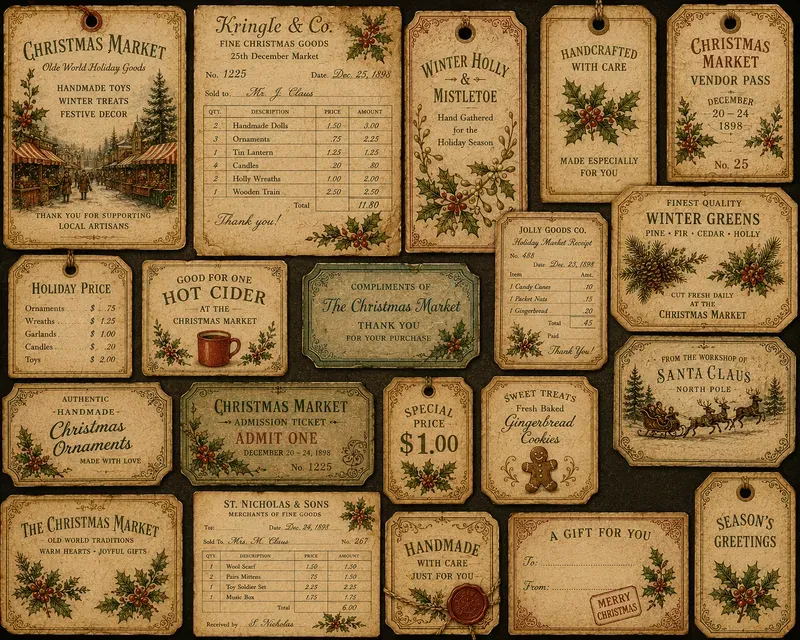 CHRISTMAS MARKET
Olde World Holiday Goods
HANDMADE TOYS
WINTER TREATS
FESTIVE DECOR
THANK YOU FOR SUPPORTING
LOCAL ARTISANS
Kringle & Co.
FINE CHRISTMAS GOODS
25th December Market
No. 1225 Date Dec. 25, 1898
Sold to. Mr. J. Claus
QTY. DESCRIPTION PRICE AMOUNT
2 Handmade Dolls 1.50 3.00
3 Ornaments .75 2.25
1 Tin Lantern 1.25 1.25
4 Candles .20 80
2 Holly Wreaths 1.00 2.00
1 Wooden Train 2.50 2.50
Total 11.80
Thank you!
WINTER HOLLY
&
MISTLETOE
Hand Gathered
for the
Holiday Season
HANDCRAFTED
WITH CARE
MADE ESPECIALLY
FOR YOU
CHRISTMAS
MARKET
VENDOR PASS
DECEMBER
20 – 24
1898
No. 25
HOLIDAY PRICE
Ornaments $ .75
Wreaths $ 1.25
Garlands $ 1.00
Candles $ .20
Toys $ 2.00
GOOD FOR ONE
HOT CIDER
AT THE
CHRISTMAS MARKET
COMPLIMENTS OF
The Christmas Market
THANK YOU
FOR YOUR PURCHASE
JOLLY GOODS CO.
Holiday Market Receipt
No. 488
Date Dec. 23, 1898
Item Amt.
1 Candy Canes .10
1 Packet Nuts .15
1 Gingerbread .20
Total .45
Paid
Thank You!
FINEST QUALITY
WINTER GREENS
PINE • FIR • CEDAR • HOLLY
CUT FRESH DAILY
AT THE
CHRISTMAS MARKET
AUTHENTIC
- HANDMADE -
Christmas
Ornaments
MADE WITH LOVE
CHRISTMAS MARKET
ADMISSION TICKET
ADMIT ONE
DECEMBER 20 – 24, 1898
No. 1225
SPECIAL
PRICE
$1.00
SWEET TREATS
Fresh Baked
Gingerbread
Cookies
FROM THE WORKSHOP OF
SANTA CLAUS
NORTH POLE
THE CHRISTMAS MARKET
OLD WORLD TRADITIONS
WARM HEARTS • JOYFUL GIFTS
ST. NICHOLAS & SONS
MERCHANTS OF FINE GOODS
Date Dec. 24, 1898 No. 267
Sold To. Mrs. M. Claus
QTY. DESCRIPTION PRICE AMOUNT
1 Wool Scarf 1.50 1.50
2 Pairs Mittens .75 1.50
1 Toy Soldier Set 2.25 2.25
1 Music Box 1.75 1.75
Total 6.00
Received by S. Nicholas
HANDMADE
WITH CARE
JUST FOR YOU
A GIFT FOR YOU
To:
From:
MERRY
CHRISTMAS
SEASON'S
GREETINGS